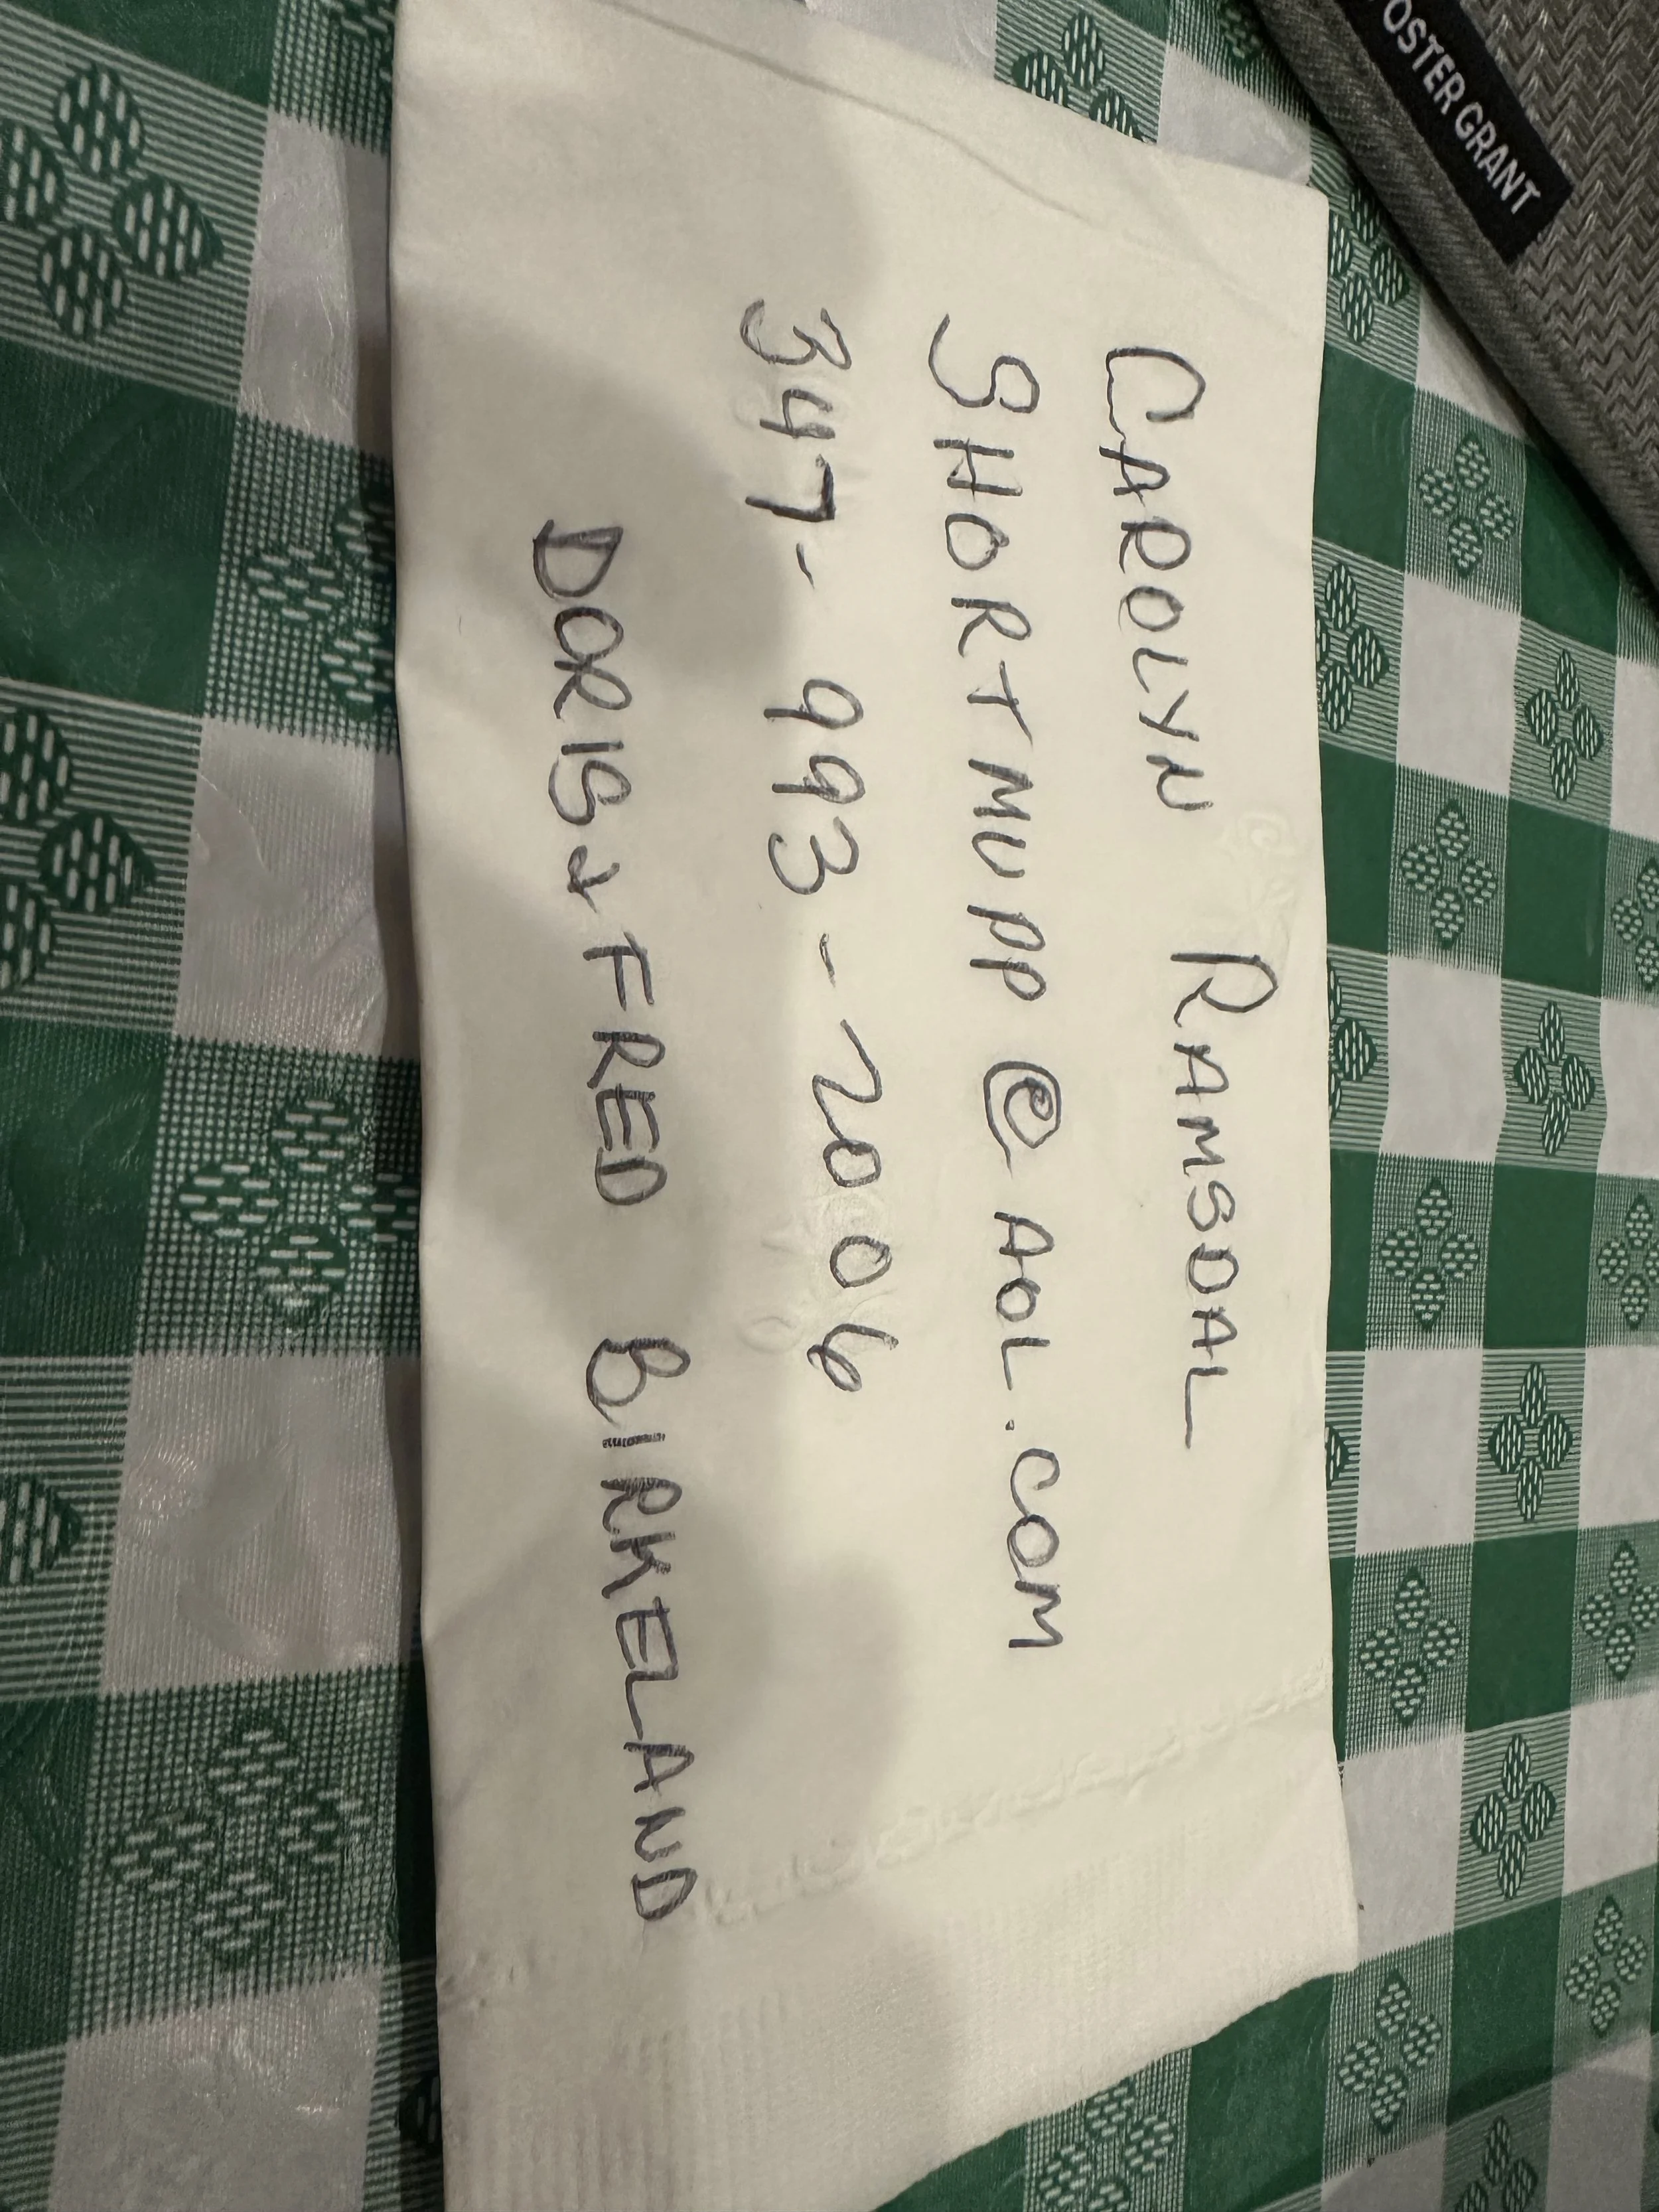 CAROLYN RAMSDAL
SHORTMUPP@AOL.COM
347-993-2006
DORIS & FRED BIRKELAND
FOSTER GRANT